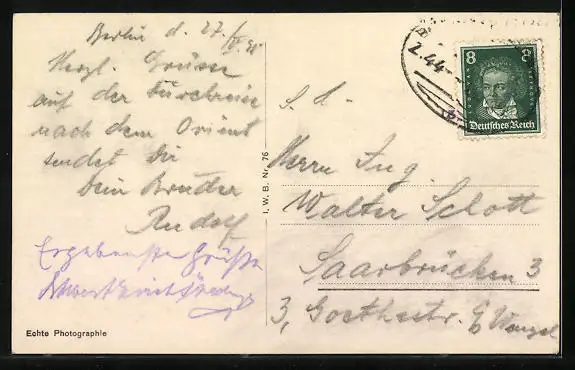 Berlin d. 27/
Herzl. Grüsse
auf der Durchreise
nach dem Orient
sendet Dir
Dein Bruder
Rudolf
Ergebenste Grüße
Echte Photographie
I. W. B. Nr. 76
8 8
Deutsches Reich
2.44
S. d.
Herrn Ing.
Walter Schott
Saarbrücken 3
3, Goethestr.